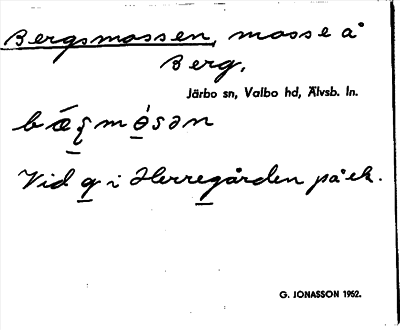 Bergsmossen, mosse å
Berg.
Järbo sn, Valbo hd, Älvsb. ln.
Vid g i Herregården på ek.
G. JONASSON 1962.